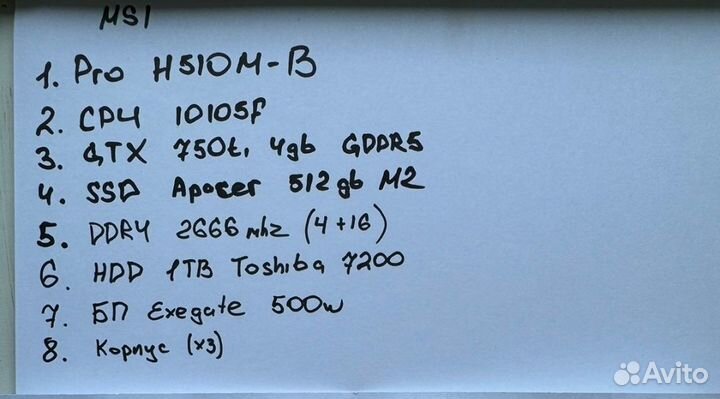 MSI
1. Pro H510M-B
2. CPU 10105f
3. GTX 750ti 4gb GDDR5
4. SSD Apacer 512 gb M2
5. DDR4 2666 mhz (4+16)
6. HDD 1TB Toshiba 7200
7. БП Exegate 500w
8. Корпус (х3)
Avito